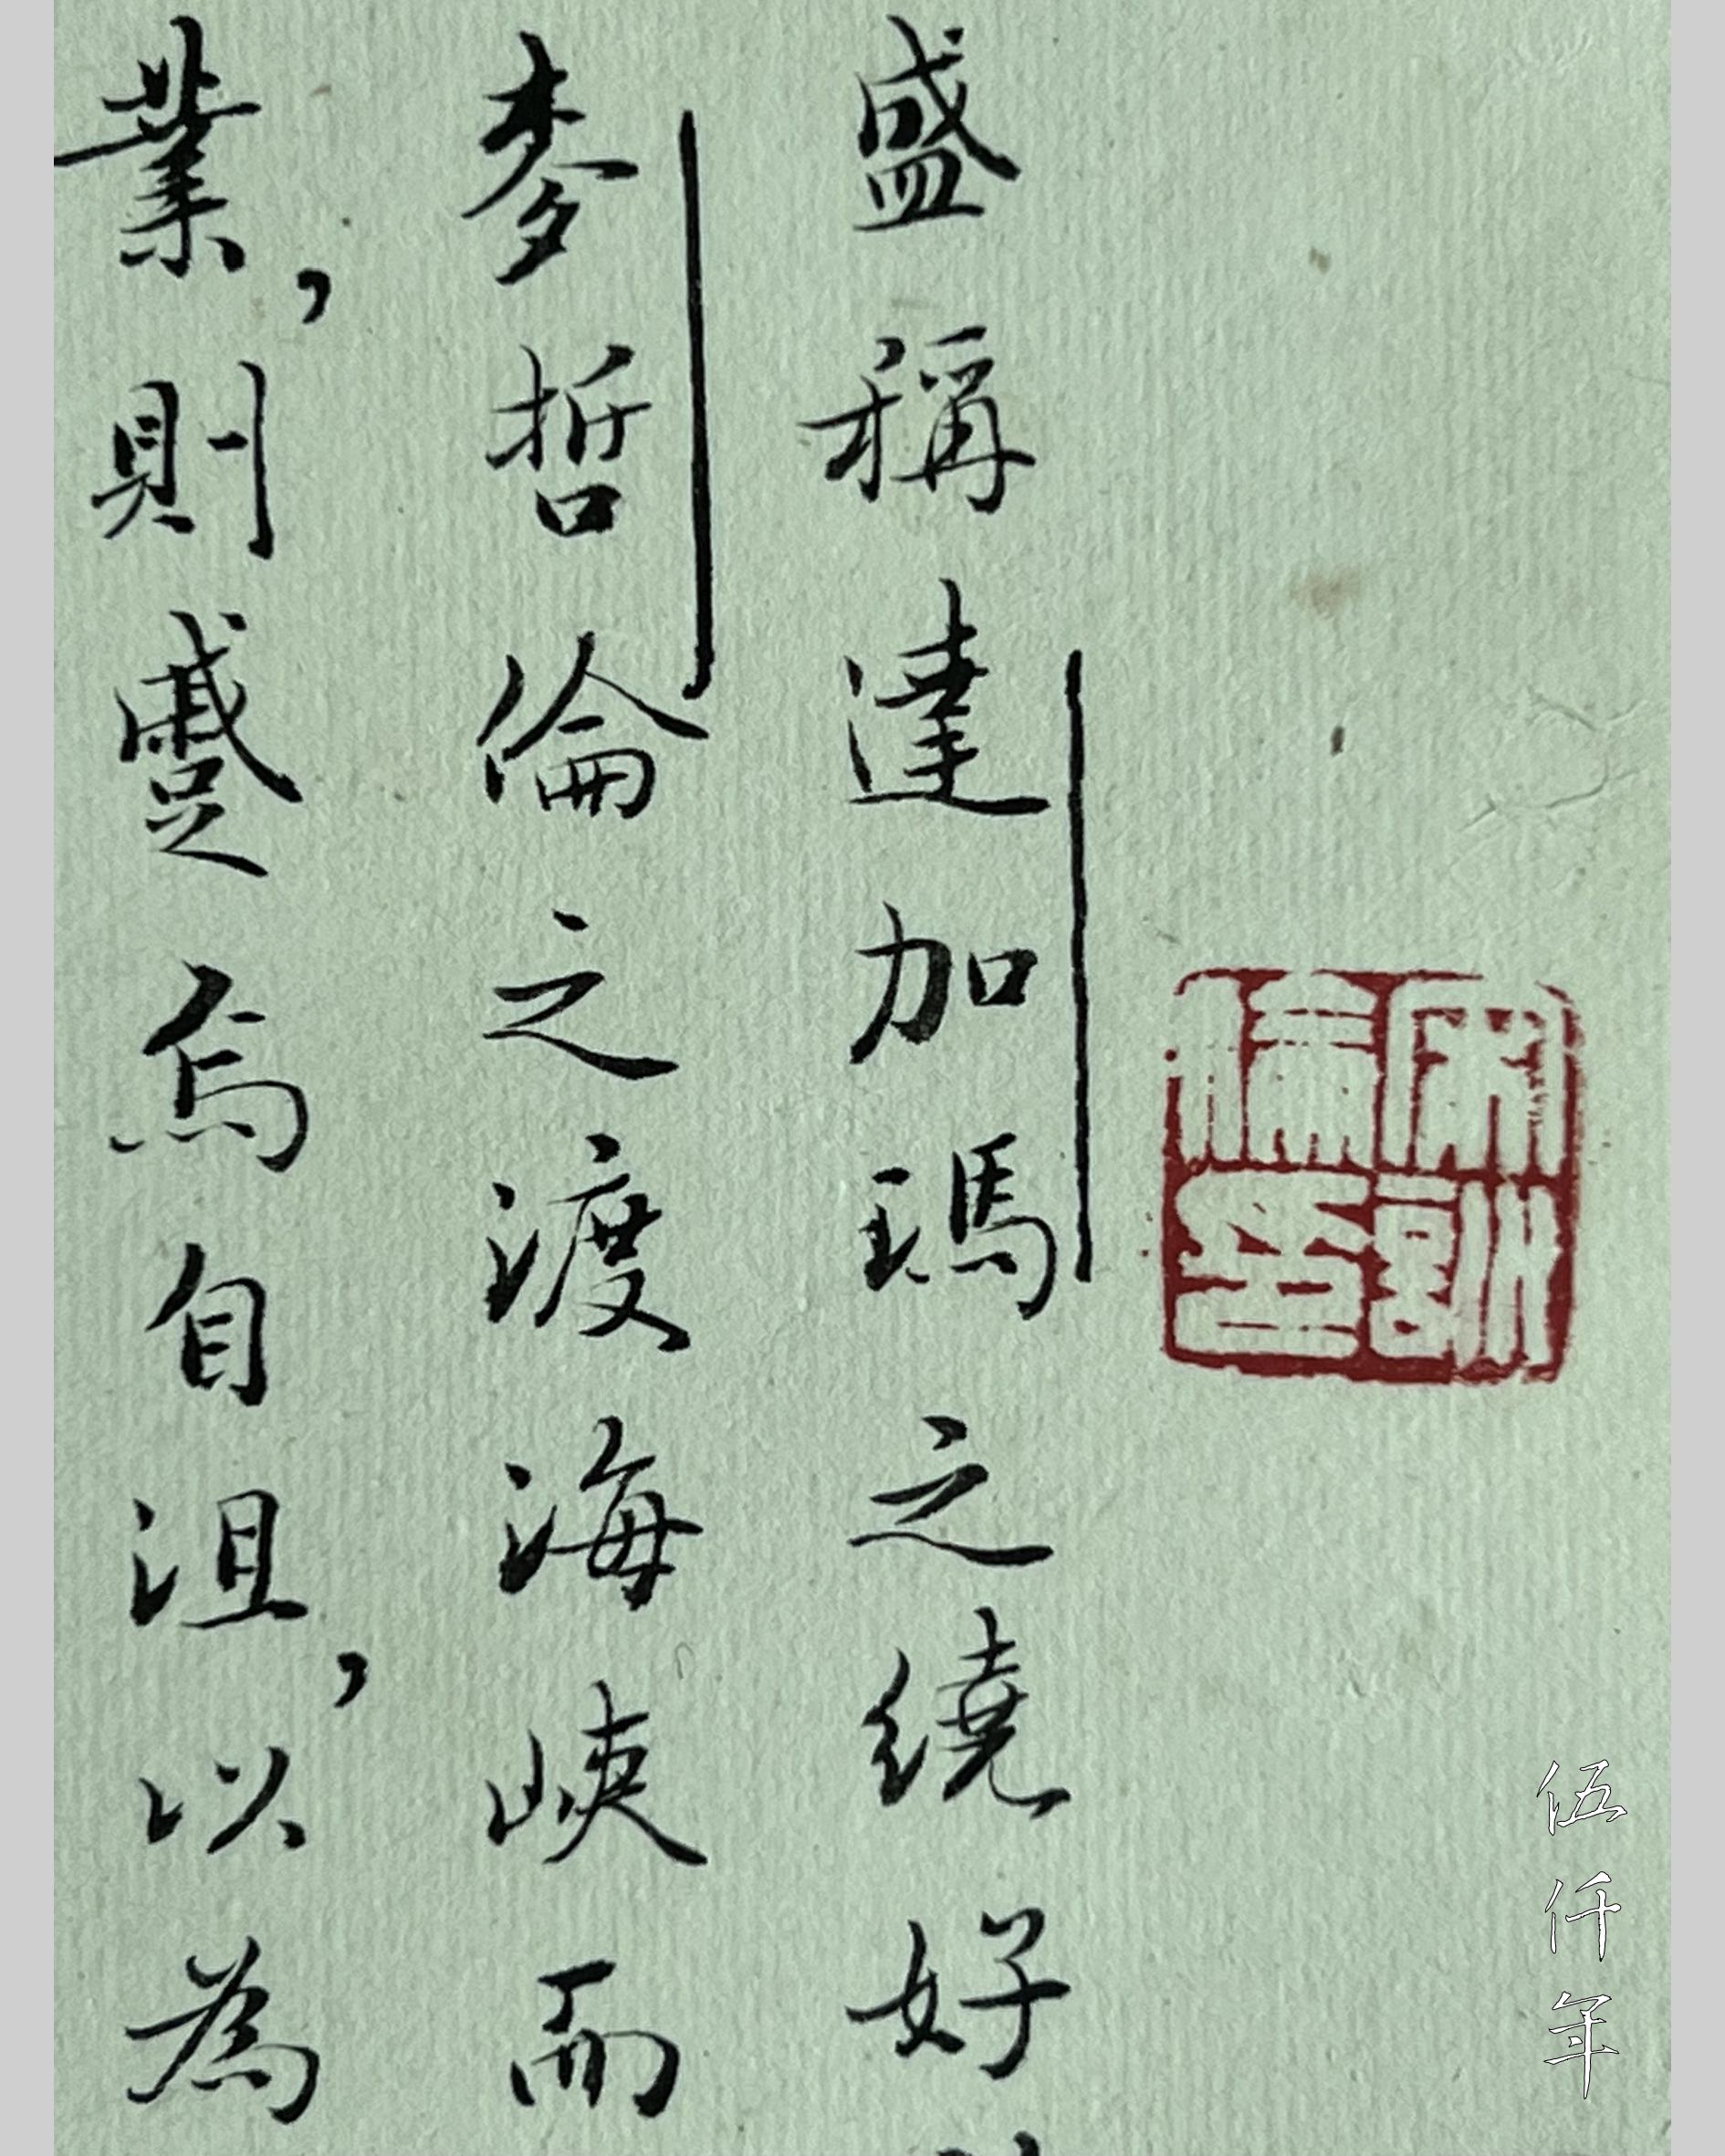 盛稱達加瑪之繞好
麥哲倫之渡海峽而
業，則蹙焉自沮，以為
伍仟年